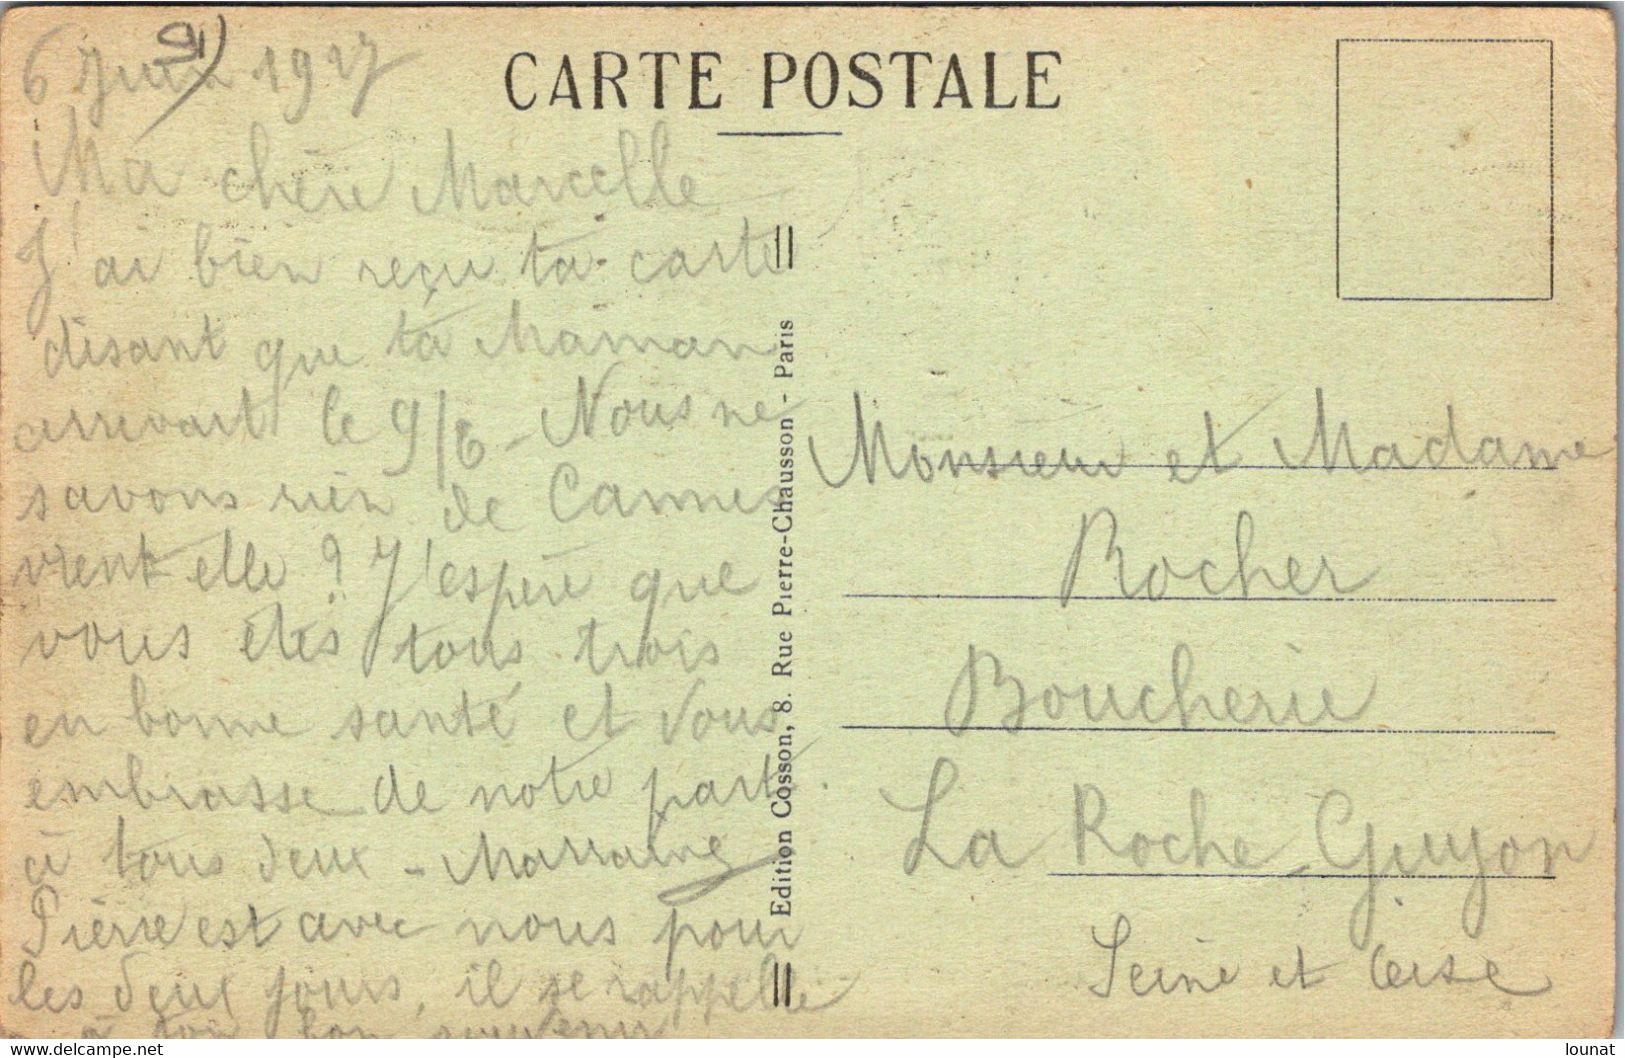 6 Juin 1927
91)
CARTE POSTALE
Ma chère Marcelle
J'ai bien reçu ta carte
disant que ta Maman
arrivait le 9/6 - Nous ne
savons rien de Cannes
vient elle ? J'espère que
vous êtes tous trois
en bonne santé et vous
embrasse de notre part
à tous deux - Marraine
Pierre est avec nous pour
les deux jours, il se rappelle
à ton bon souvenir
Edition Cosson, 8. Rue Pierre-Chausson - Paris
Monsieur et Madame
Rocher
Boucherie
La Roche-Guyon
Seine et Oise
© www.delcampe.net
lounat